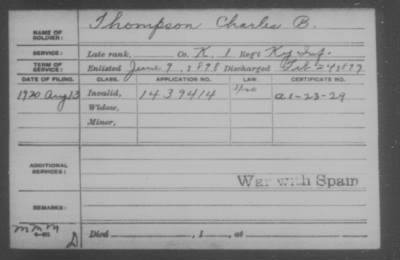 NAME OF SOLDIER: Thompson Charles B.
SERVICE: Late rank, Co. K, 1 Reg't Ky Inf.
TERM OF SERVICE: Enlisted June 9, 1898 Discharged Feb 24 1899
DATE OF FILING. CLASS. APPLICATION NO. LAW. CERTIFICATE NO.
1920 Aug 13 Invalid, 1439414
Widow,
Minor,
ADDITIONAL SERVICES: War with Spain
REMARKS:
Died , 1 , at